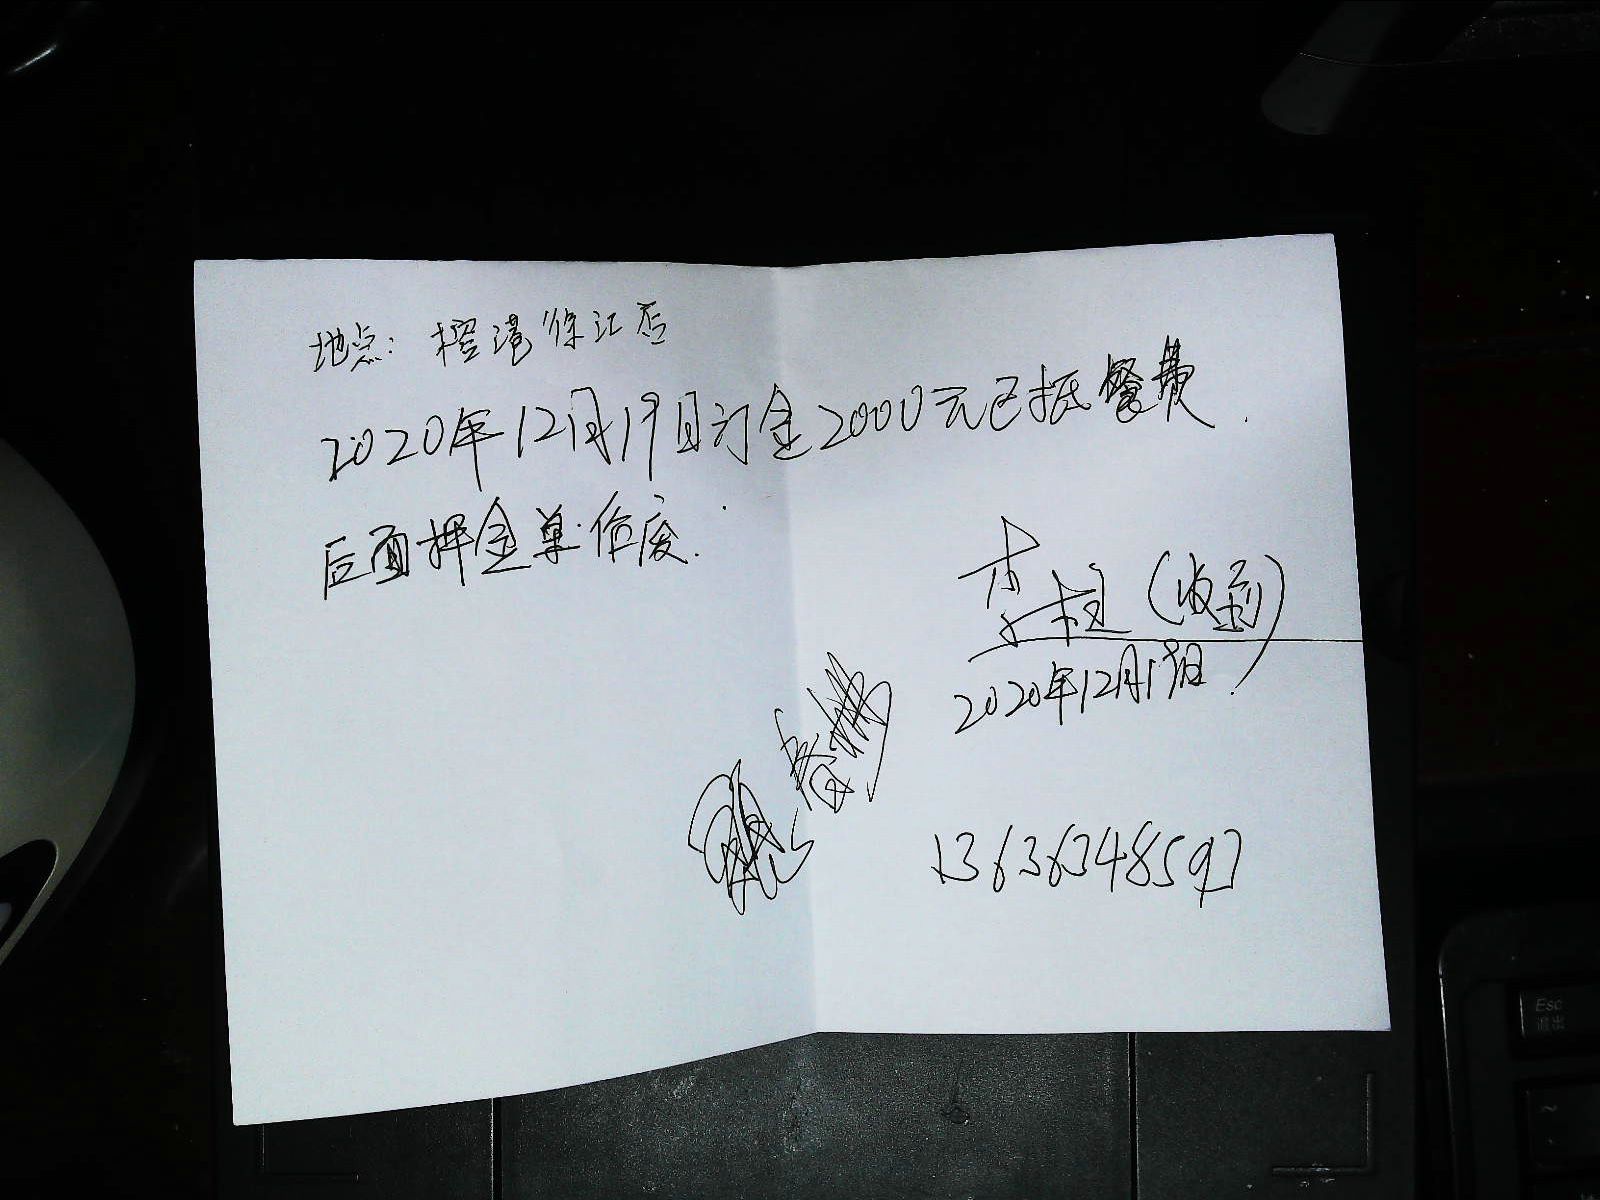 地点: 橙港徐江店
2020年12月19日订金2000元已抵餐费.
后面押金单作废.
李超(收到)
2020年12月19日.
春
13636348597
Esc
退出
~